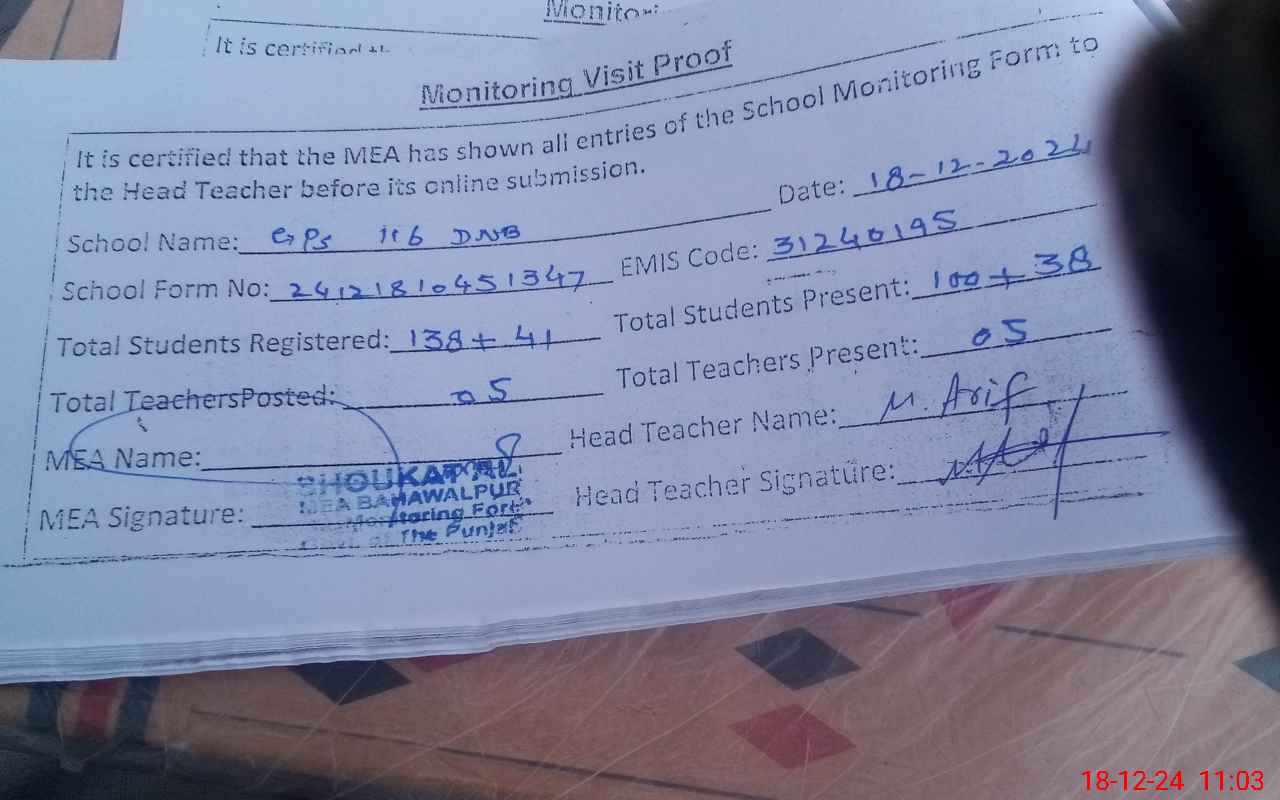 Monitori
It is certified th
Monitoring Visit Proof
It is certified that the MEA has shown all entries of the School Monitoring Form to
the Head Teacher before its online submission.
Date: 18-12-2024
School Name: GPS 116 DNB
EMIS Code: 31240195
School Form No: 24121810451347
Total Students Present: 100+38
Total Students Registered: 138+41
Total Teachers Present: 05
Total TeachersPosted: 05
Head Teacher Name: M. Arif
MEA Name:
SHOUKAT ALI
MEA BAHAWALPUR
Head Teacher Signature:
MEA Signature:
Monitoring Force
Govt of The Punjab
18-12-24 11:03